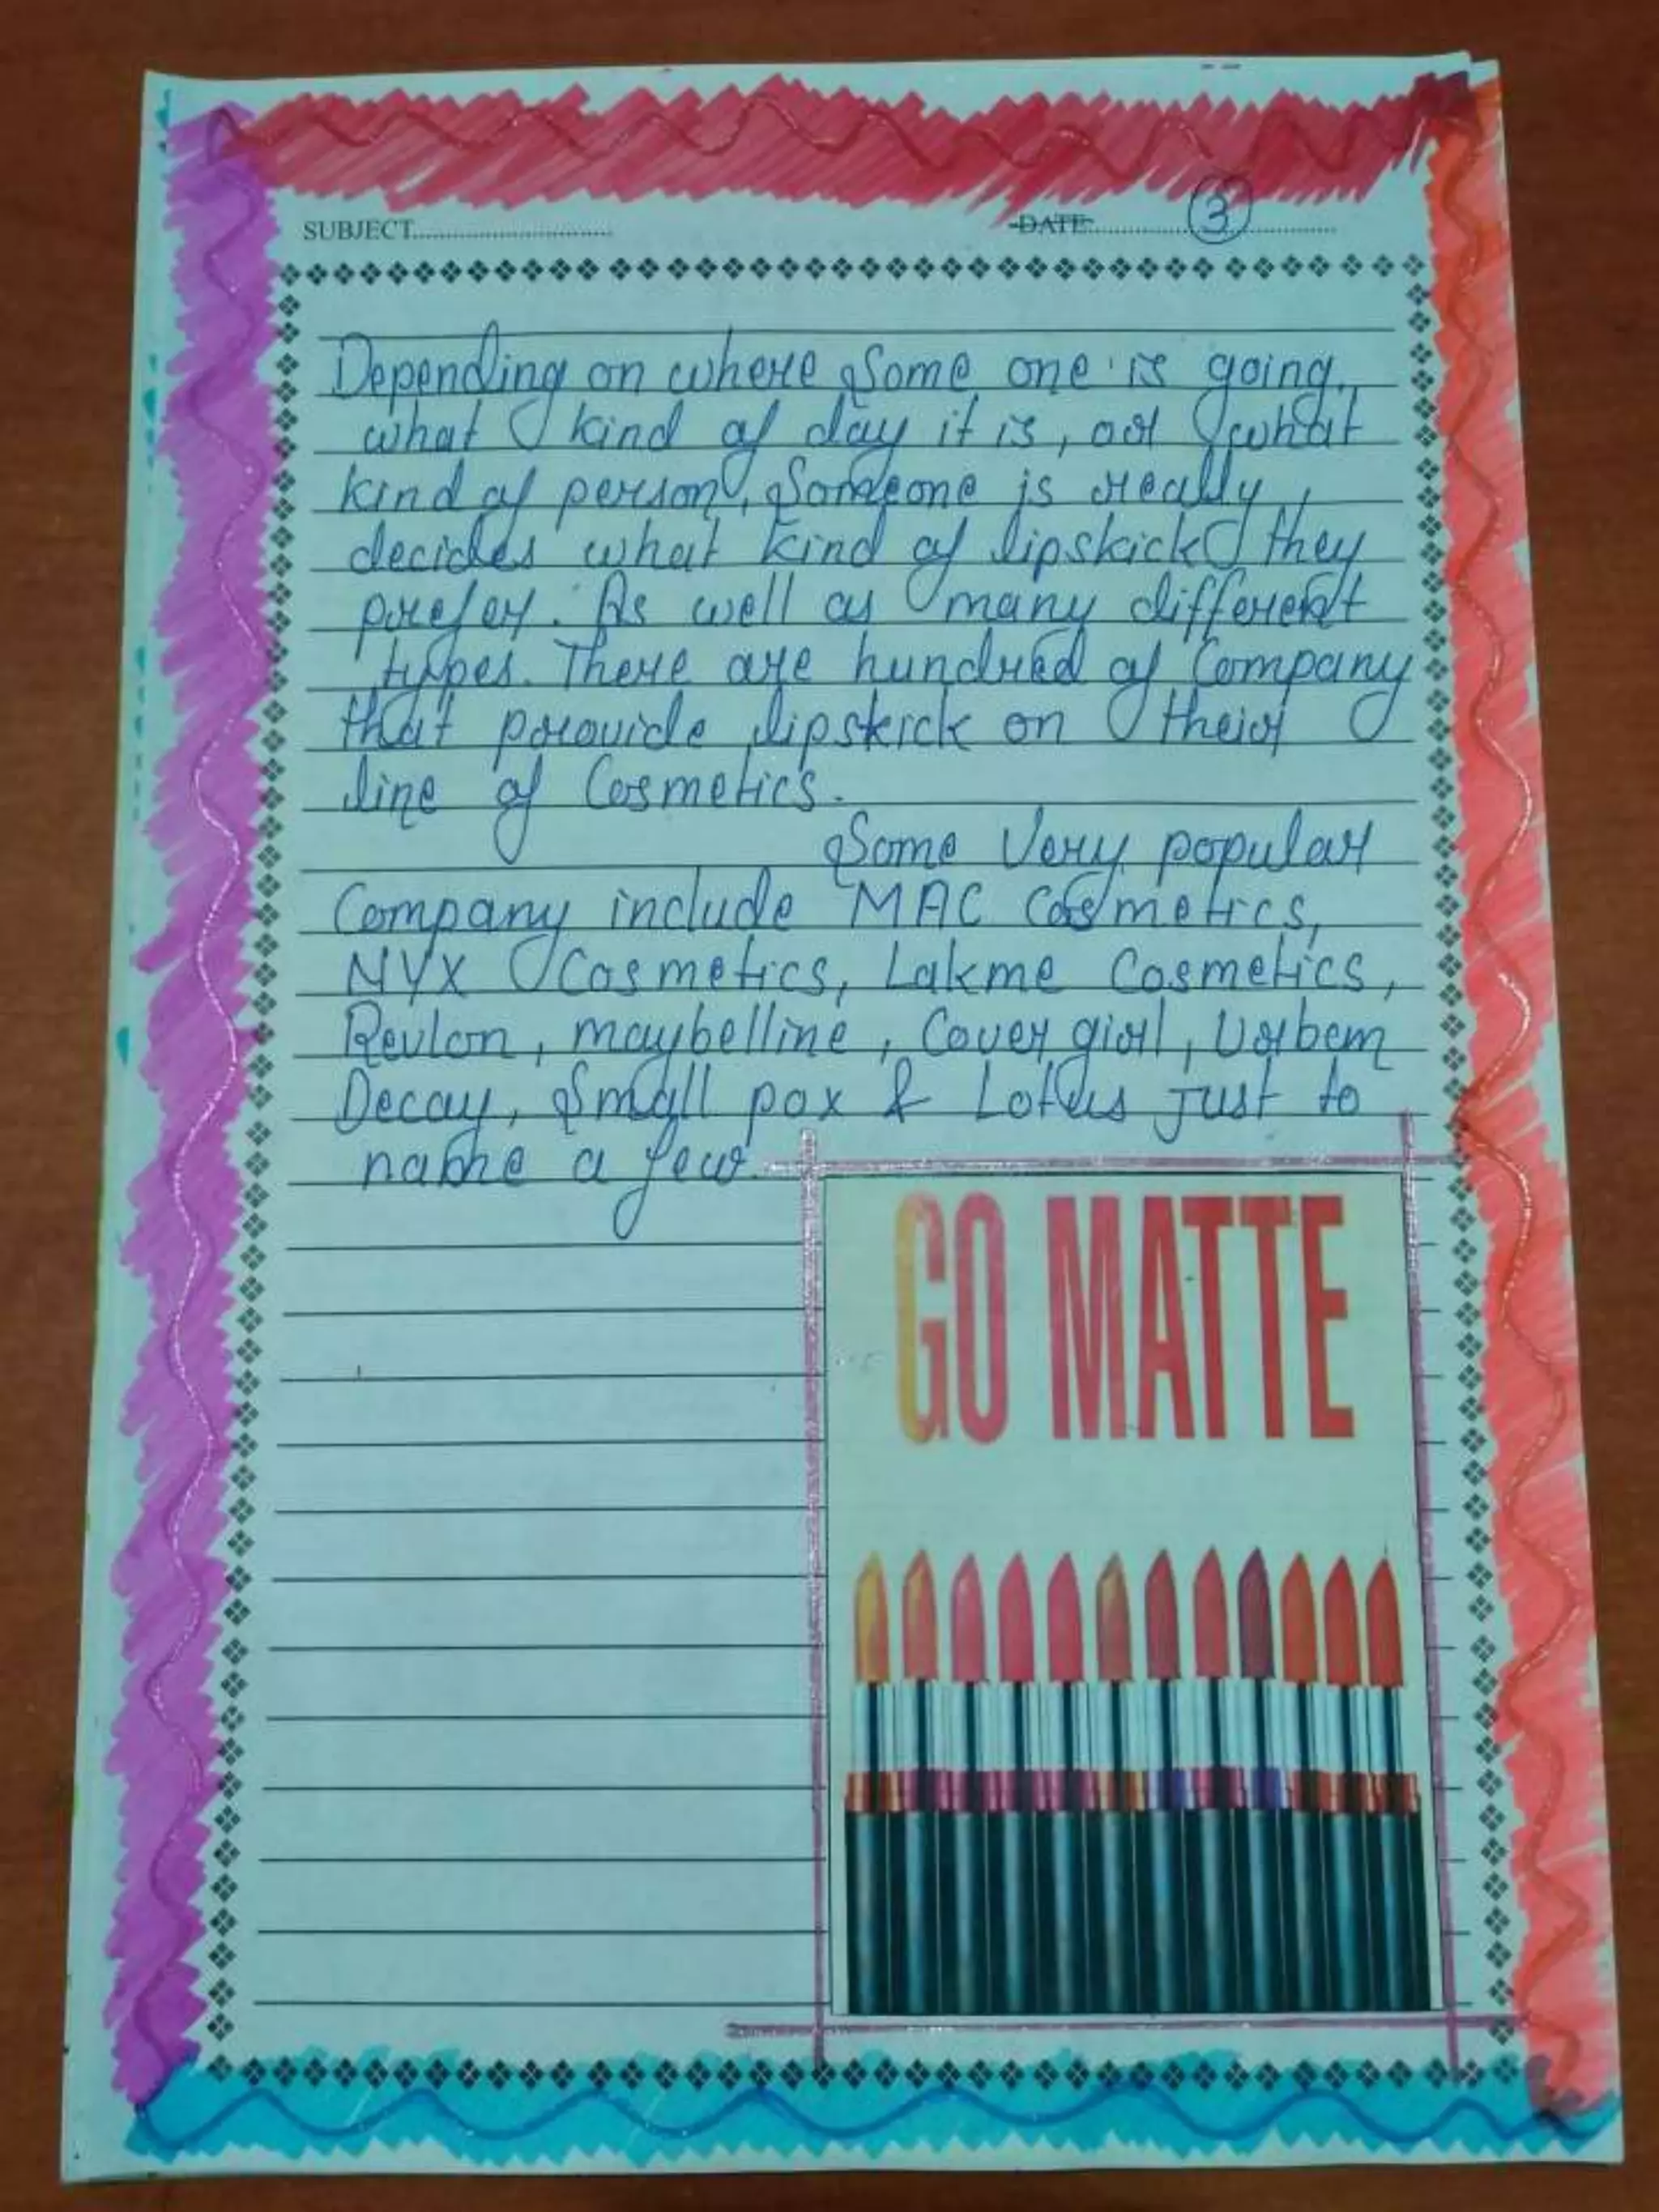 SUBJECT.................................
DATE:.................. 3 ..............
Depending on where Some one is going,
what kind of day it is, or what
kind of person, Someone is really,
decides what kind of lipskick they
prefer. As well as many different
types. There are hundred of Company
that provide lipskick on their
line of Cosmetics.
Some Very popular
Company include MAC Cosmetics,
NYX Cosmetics, Lakme Cosmetics,
Revlon, maybelline, Cover girl, Urbem
Decay, Small pox & Lotus just to
name a few.
GO MATTE